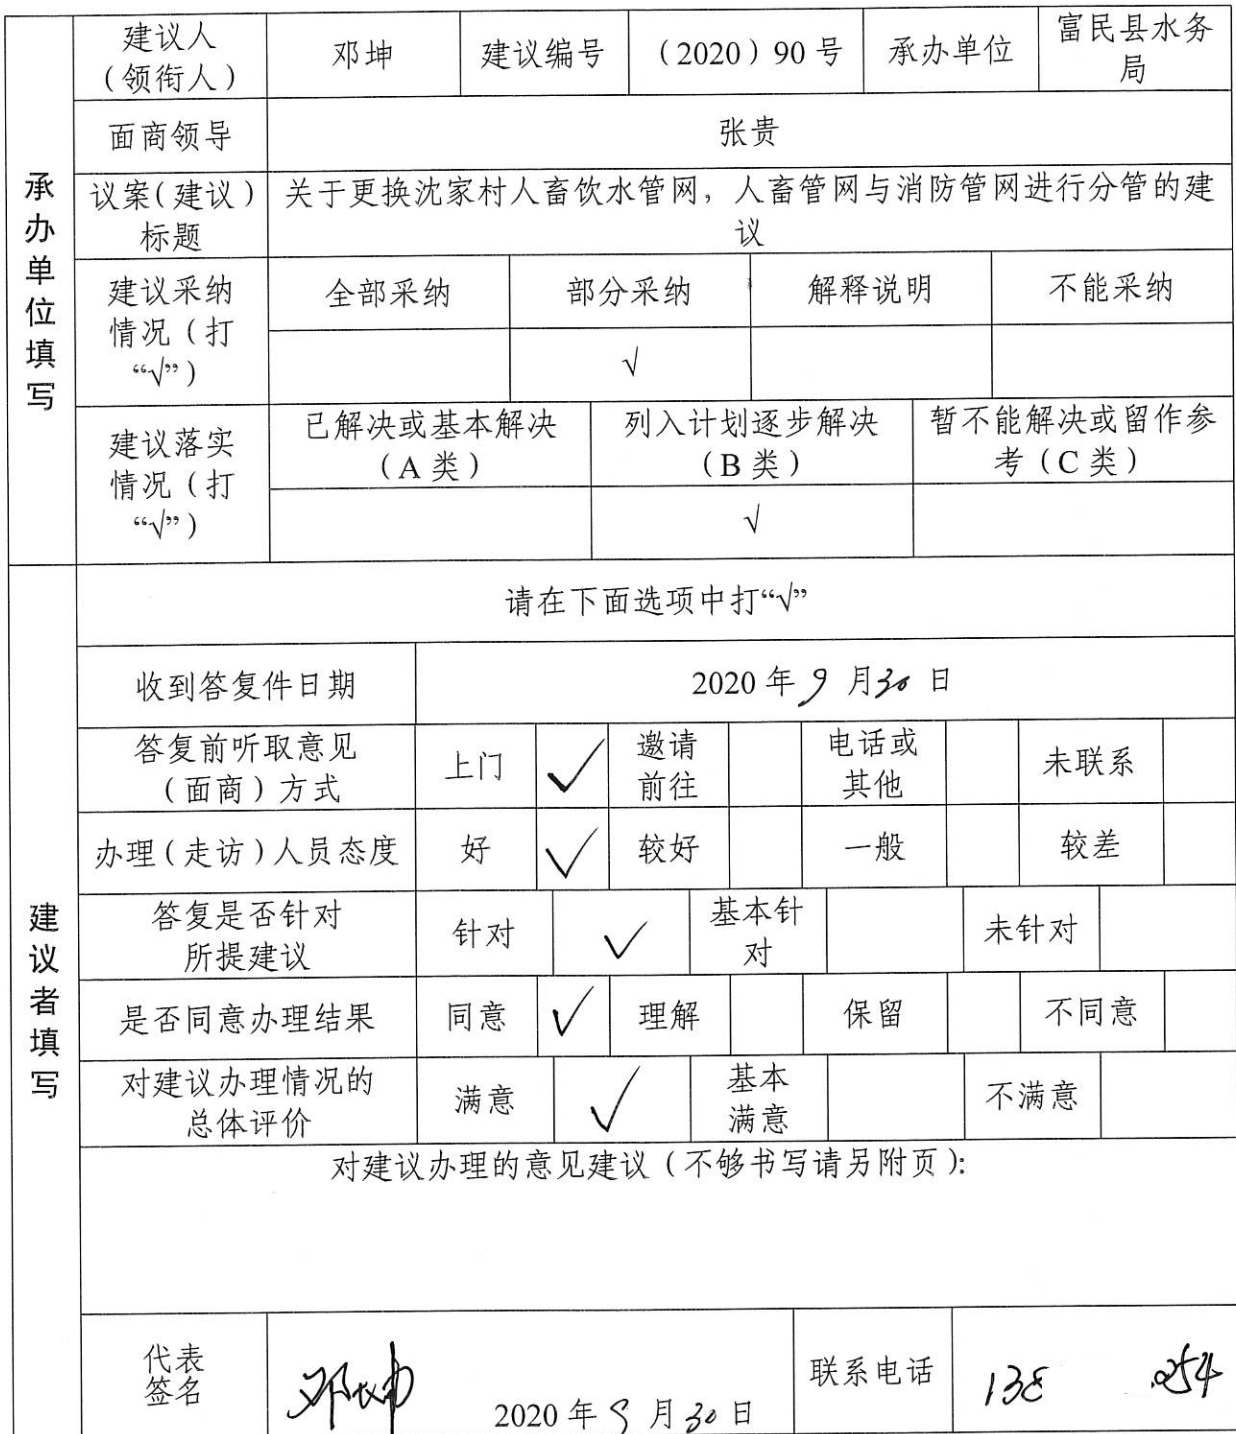 承办单位填写
建议人
（领衔人）
邓坤
建议编号
（2020）90 号
承办单位
富民县水务
局
面商领导
张贵
议案（建议）
标题
关于更换沈家村人畜饮水管网，人畜管网与消防管网进行分管的建
议
建议采纳
情况（打
“√”）
全部采纳
部分采纳
解释说明
不能采纳
√
建议落实
情况（打
“√”）
已解决或基本解决
（A 类）
列入计划逐步解决
（B 类）
暂不能解决或留作参
考（C 类）
√
建议者填写
请在下面选项中打“√”
收到答复件日期
2020 年 9 月 30 日
答复前听取意见
（面商）方式
上门
√
邀请
前往
电话或
其他
未联系
办理（走访）人员态度
好
√
较好
一般
较差
答复是否针对
所提建议
针对
√
基本针
对
未针对
是否同意办理结果
同意
√
理解
保留
不同意
对建议办理情况的
总体评价
满意
√
基本
满意
不满意
对建议办理的意见建议（不够书写请另附页）：
代表
签名
邓坤
2020 年 9 月 30 日
联系电话
138 254